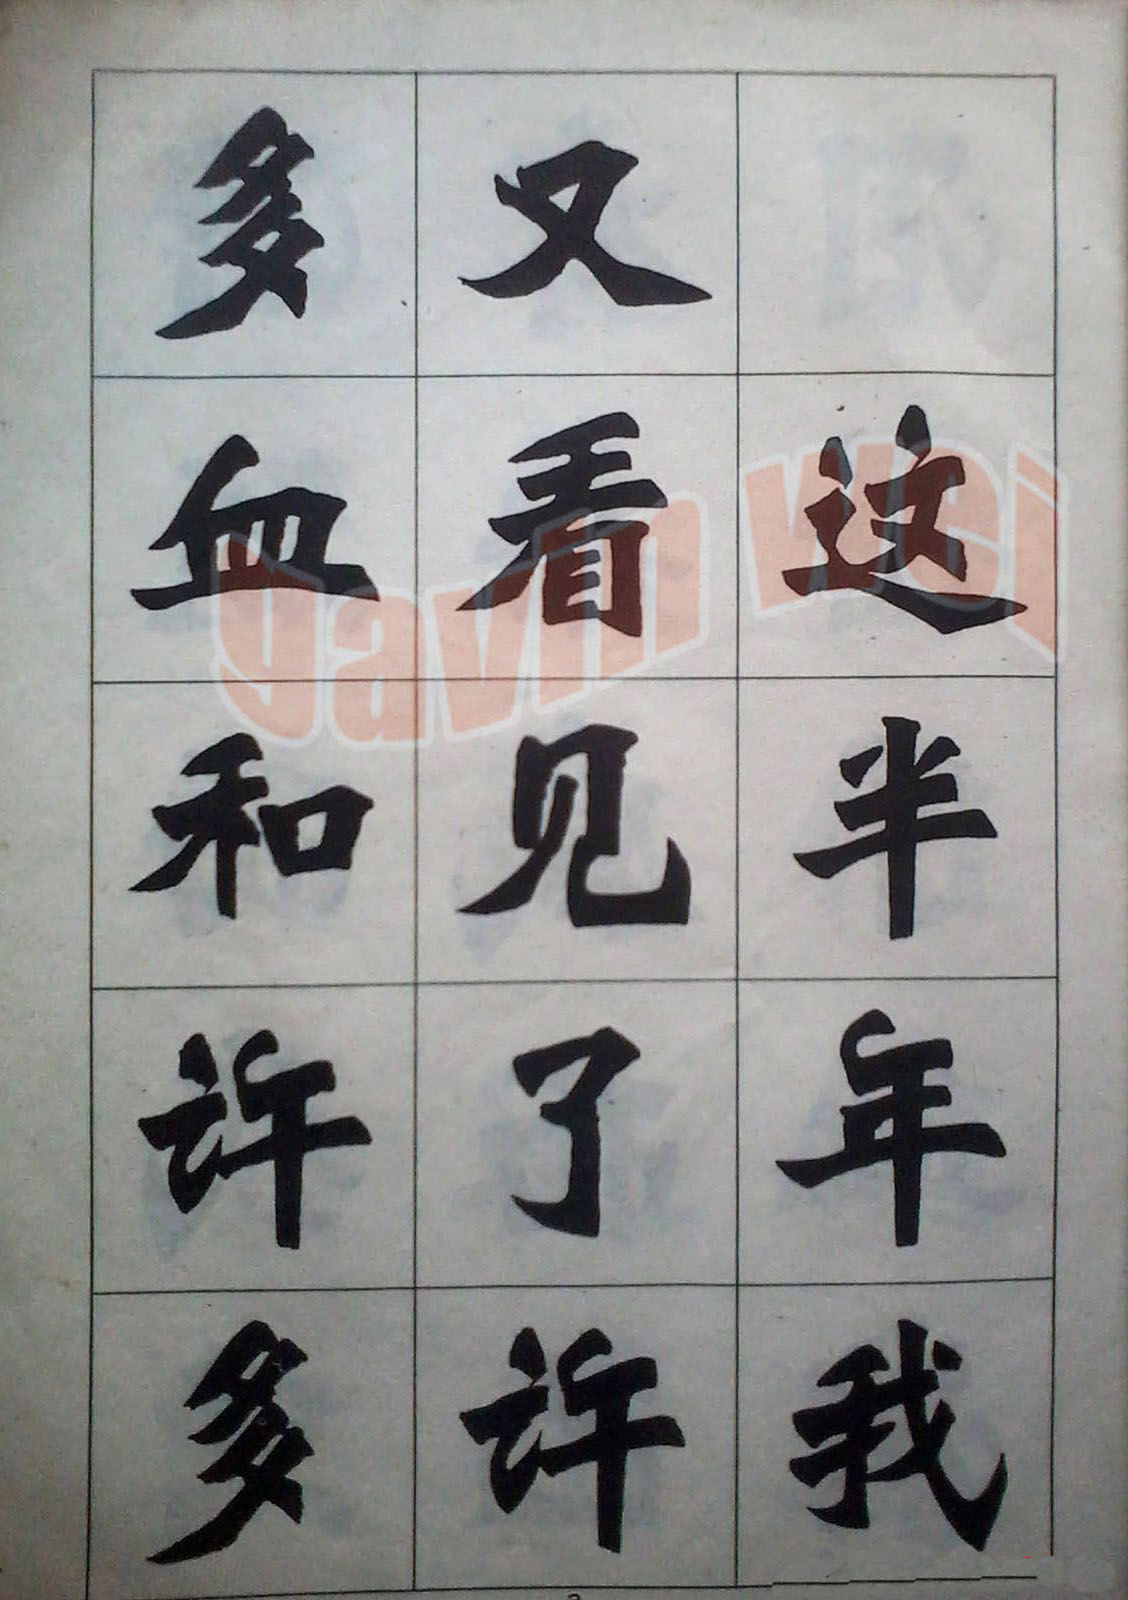 这半年我
又看见了许
多血和许多
gavin wei